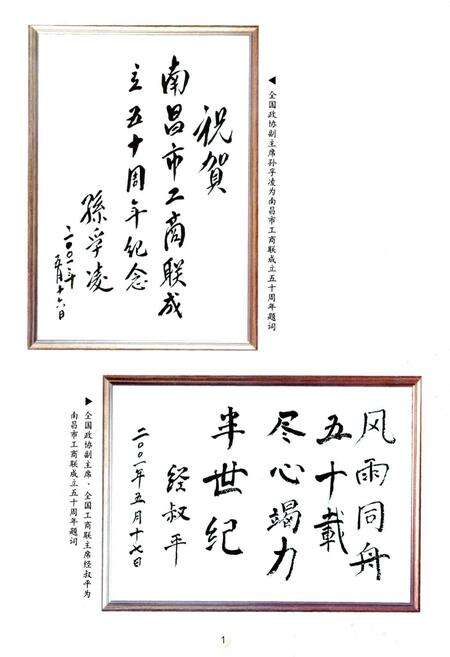 祝贺
南昌市工商联成
立五十周年纪念
孫孚凌
二〇〇一年
五月十六日
全国政协副主席孙孚凌为南昌市工商联成立五十周年题词
风雨同舟
五十載
尽心竭力
半世纪
经叔平
二〇〇一年五月十七日
全国政协副主席、全国工商联主席经叔平为
南昌市工商联成立五十周年题词
1